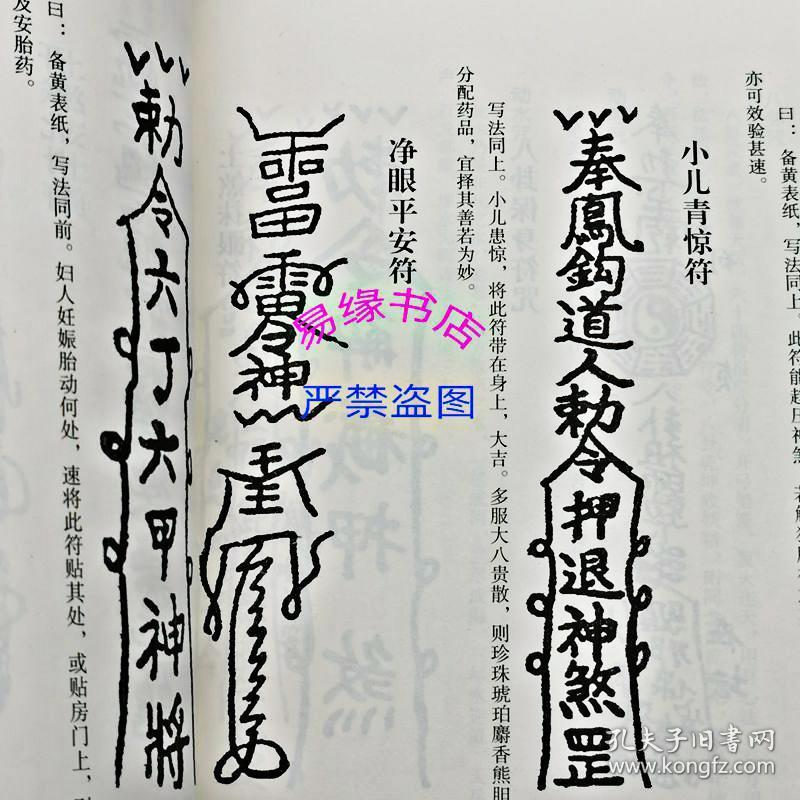 曰：备黄表纸，写法同上，此符能赶压神煞，若解
亦可效验甚速。
小儿青惊符
奉鳳鈎道人勅令押退神煞罡
写法同上。小儿患惊，将此符带在身上，大吉。多服大八贵散，则珍珠琥珀麝香熊胆
分配药品，宜择其善若为妙。
净眼平安符
神煞
勅令六丁六甲神將
曰：备黄表纸，写法同前。妇人妊娠胎动何处，速将此符贴其处，或贴房门上，
及安胎药。
易缘书店
严禁盗图
孔夫子旧书网
www.kongfz.com